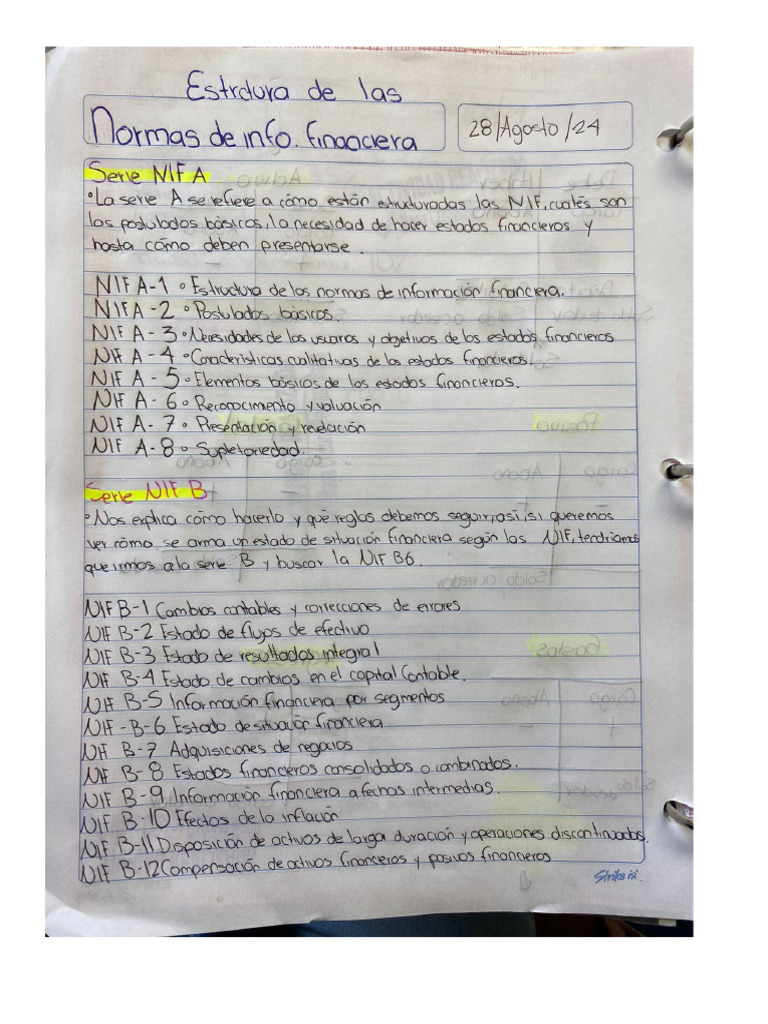 Estrctura de las
Normas de info. financiera
28/Agosto/24
Serie NIF A
• La serie A se refiere a cómo están estructuradas las NIF, cuáles son
los postulados básicos, la necesidad de hacer estados financieros y
hasta cómo deben presentarse.
NIF A-1 • Estructura de las normas de información financiera.
NIF A-2 • Postulados básicos.
NIF A-3 • Necesidades de los usuarios y objetivos de los estados financieros
NIF A-4 • Características cualitativas de los estados financieros.
NIF A-5 • Elementos básicos de los estados financieros.
NIF A-6 • Reconocimiento y valuación
NIF A-7 • Presentación y revelación
NIF A-8 • Supletoriedad.
Serie NIF B
• Nos explica cómo hacerlo y qué reglas debemos seguir, así, si queremos
ver cómo se arma un estado de situación financiera según las NIF, tendríamos
que irnos a la serie B y buscar la NIF B6.
NIF B-1 Cambios contables y correcciones de errores
NIF B-2 Estado de flujos de efectivo
NIF B-3 Estado de resultados integral
NIF B-4 Estado de cambios en el capital Contable.
NIF B-5 Información financiera por segmentos
NIF-B-6 Estado de situación financiera
NIF B-7 Adquisiciones de negocios
NIF B-8 Estados financieros consolidados o combinados.
NIF B-9 Información financiera a fechas intermedias.
NIF B-10 Efectos de la inflación
NIF B-11 Disposición de activos de larga duración y operaciones discontinuadas.
NIF B-12 Compensación de activos financieros y pasivos financieros